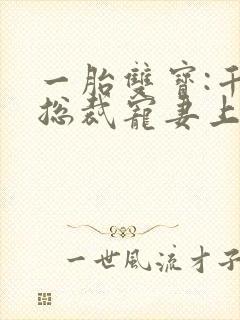 一胎雙寶:千
总裁寵妻上
一世風流才子